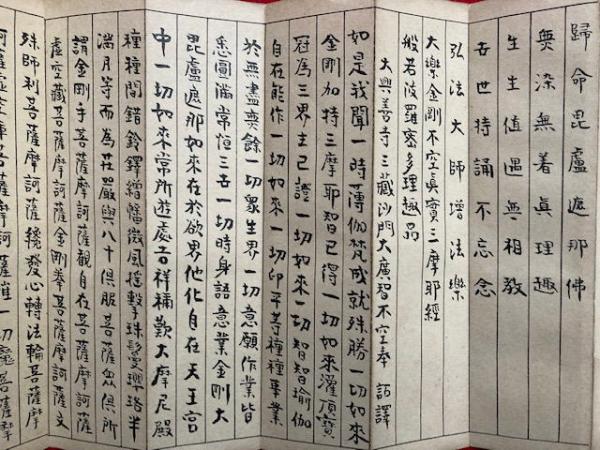 歸命毘盧遮那佛
無染無着眞理趣
生生值遇無相教
世世持誦不忘念
弘法大師增法樂
大樂金剛不空眞實三摩耶經
般若波羅蜜多理趣品
大興善寺三藏沙門大廣智不空奉 詔譯
如是我聞一時薄伽梵成就殊勝一切如來
金剛加持三摩耶智已得一切如來灌頂寶
冠爲三界主已證一切如來一切智智瑜伽
自在能作一切如來一切印平等種種事業
於無盡無餘一切衆生界一切意願作業皆
悉圓滿常恒三世一切時身語意業金剛大
毘盧遮那如來在於欲界他化自在天王宮
中一切如來常所遊處吉祥稱歎大摩尼殿
種種間錯鈴鐸繒幡微風搖擊珠鬘瓔珞半
滿月等而爲莊嚴與八十俱胝菩薩衆俱所
謂金剛手菩薩摩訶薩觀自在菩薩摩訶薩
虛空藏菩薩摩訶薩金剛拳菩薩摩訶薩文
殊師利菩薩摩訶薩纔發心轉法輪菩薩摩
訶薩虛空庫菩薩摩訶薩摧一切魔菩薩摩